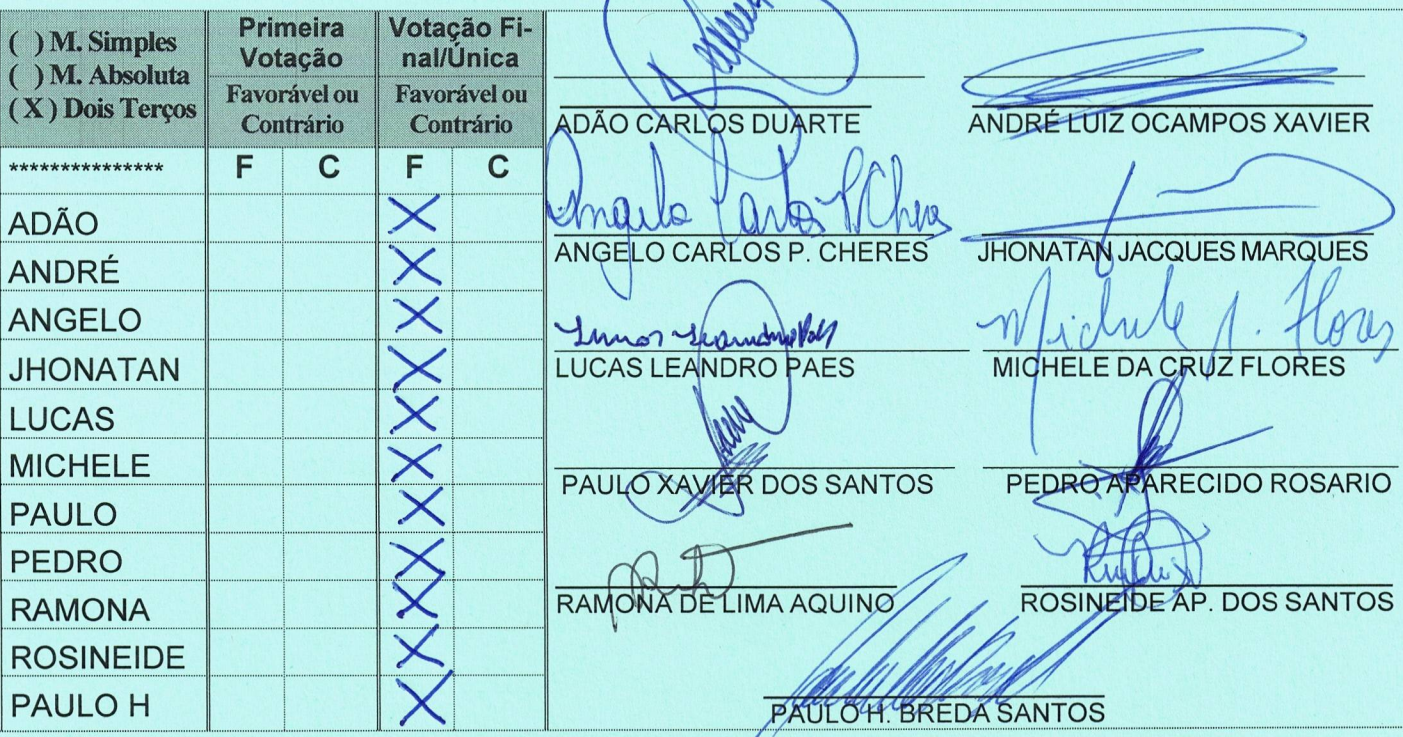 ( ) M. Simples
( ) M. Absoluta
( X ) Dois Terços
Primeira
Votação
Favorável ou
Contrário
Votação Fi-
nal/Única
Favorável ou
Contrário
*************** F C F C
ADÃO X
ANDRÉ X
ANGELO X
JHONATAN X
LUCAS X
MICHELE X
PAULO X
PEDRO X
RAMONA X
ROSINEIDE X
PAULO H X
ADÃO CARLOS DUARTE
ANDRÉ LUIZ OCAMPOS XAVIER
Angelo Carlos P. Cheres
ANGELO CARLOS P. CHERES
JHONATAN JACQUES MARQUES
Lucas Leandro Paes
LUCAS LEANDRO PAES
Michele . Flores
MICHELE DA CRUZ FLORES
PAULO XAVIER DOS SANTOS
PEDRO APARECIDO ROSARIO
RAMONA DE LIMA AQUINO
ROSINEIDE AP. DOS SANTOS
PAULO H. BREDA SANTOS